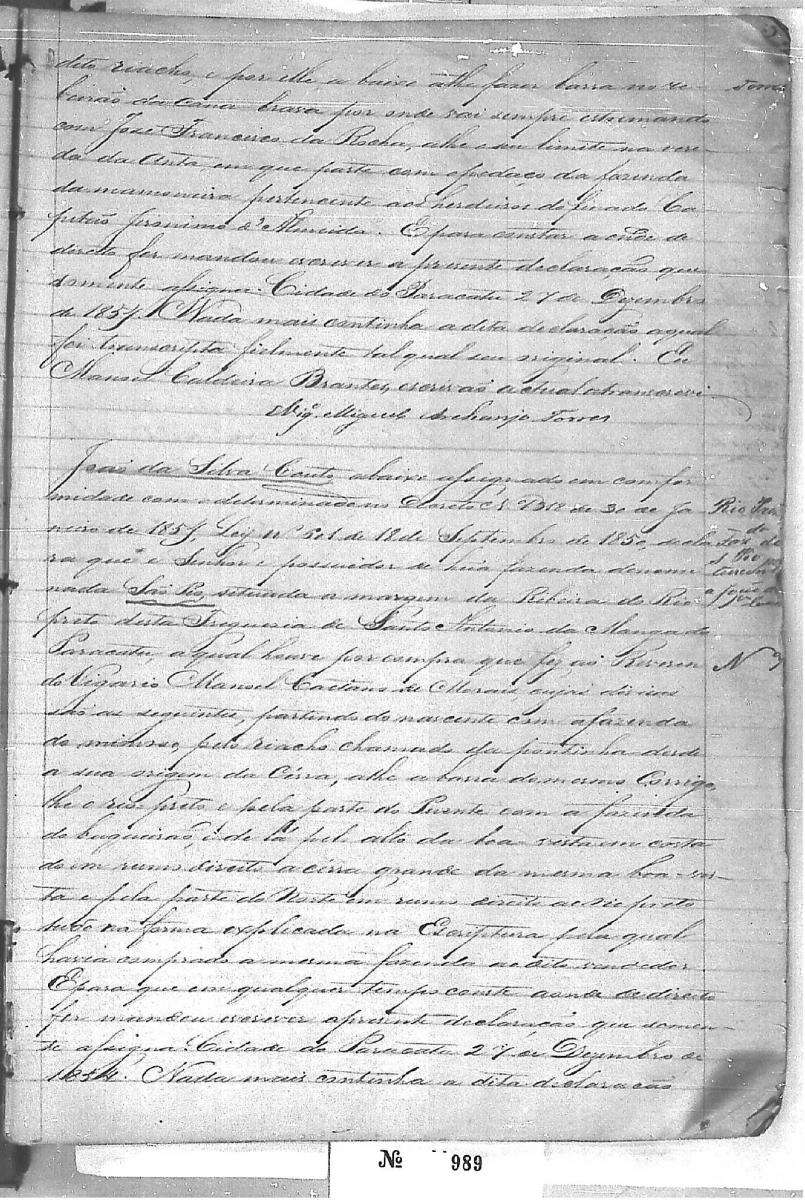 dito riacho, e por elle a baixo athe fazer barra no ri-
beirão da Cana brava por onde vai sempre estremando
com José Francisco da Rocha, athe o seu limite na vere-
da da Anta, em que parte com o pedaço da fazenda
da mamoneira pertencente aos herdeiros do finado Ca-
pitão Jeronimo d'Almeida. E para constar aonde de
direito for mandou escrever a presente declaração que
somente assigna. Cidade do Paracatu 27 de Dezembro
de 1857. Nada mais continha a dita declaração a qual
foi transcripta fielmente tal qual seu original. Eu
Manoel Caldeira Brantes, escrivão actual a transcrevi
Vigº Miguel Archanjo Torres
João da Silva Couto abaixo assignado em confor
midade com o determinado no Decreto Nº 1318 de 30 de Ja
neiro de 1854 Ley nº 601 de 18 de Septembro de 1850, decla
ra que é Senhor e possuidor de húa fazenda denomi
nada São Pio, situada a margem da Ribeira do Rio
preto desta Freguesia de Santo Antonio da Manga do
Paracatu, a qual houve por compra que fez ao Reveren
do Vigario Manoel Caetano de Morais cujas divisas
são as seguintes, partindo do nascente com a fazenda
do mimoso, pelo riacho chamado da pontinha desde
a sua origem da Cérra, athe a barra do mesmo Corrigo,
the o rio preto e pela parte do Puente com a fazenda
do buqueirão, e de lá pelo alto da boa vista em costa
do em rumo direito a cérra grande da mesma boa-vis-
ta e pela parte do Norte em rumo direito ao Rio preto
tudo na forma explicada na Escriptura pela qual
havia comprado a mesma fazenda ao dito vendedor.
E para que em qualquer tempo conste aonde de direito
for mandou escrever a presente declaração que somen-
te assigna. Cidade do Paracatu 27 de Dezembro de
1854. Nada mais continha a dita declaração
Nº 989